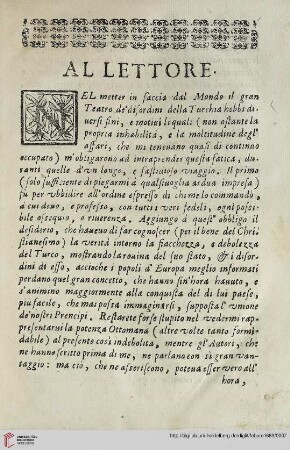 AL LETTORE.
NEL metter in faccia dal Mondo il gran
Teatro de' disordini della Turchia hebbi di-
uersi fini, e motiui li quali (non ostante la
propria inhabilità, e la moltitudine degl'
affari, che mi teneuano quasi di continuo
occupato) m'obligarono ad intraprender questa fatica, du-
ranti quelle d'vn longo, e fastidioso viaggio. Il primo
(solo sufficiente di piegarmi à qualsiuoglia ardua impresa)
fù per vbbidire all'ordine espresso di che me lo commandò
à cui deuo, e professo, con tutti i veri fedeli, ogni possi-
bile osequio, e riuerenza. Aggiungo à quest' obbligo il
desiderio, che haueuo di far cognoscer (per il bene del Chri-
stianesimo) la verità intorno la fiacchezza, e debolezza
del Turco, mostrando la rouina del suo stato, & i disor-
dini di esso, acciochè i popoli d'Europa meglio informati
perdan quel gran concetto, che hanno sin'hora hauuto, e
s'animino maggiormente alla conquista del di lui paese,
più facile, che mai possa immaginarsi, supposta l'vnione
de' nostri Prencipi. Restarete forse stupito nel vedermi rap-
presentarui la potenza Ottomana (altre volte tanto formi-
dabile) al presente così indebolita, mentre gl'Autori, che
ne hanno scritto prima di me, ne parlano con sì gran van-
taggio: ma ciò, che ne asseriscono, poteua esser vero all'
hora,